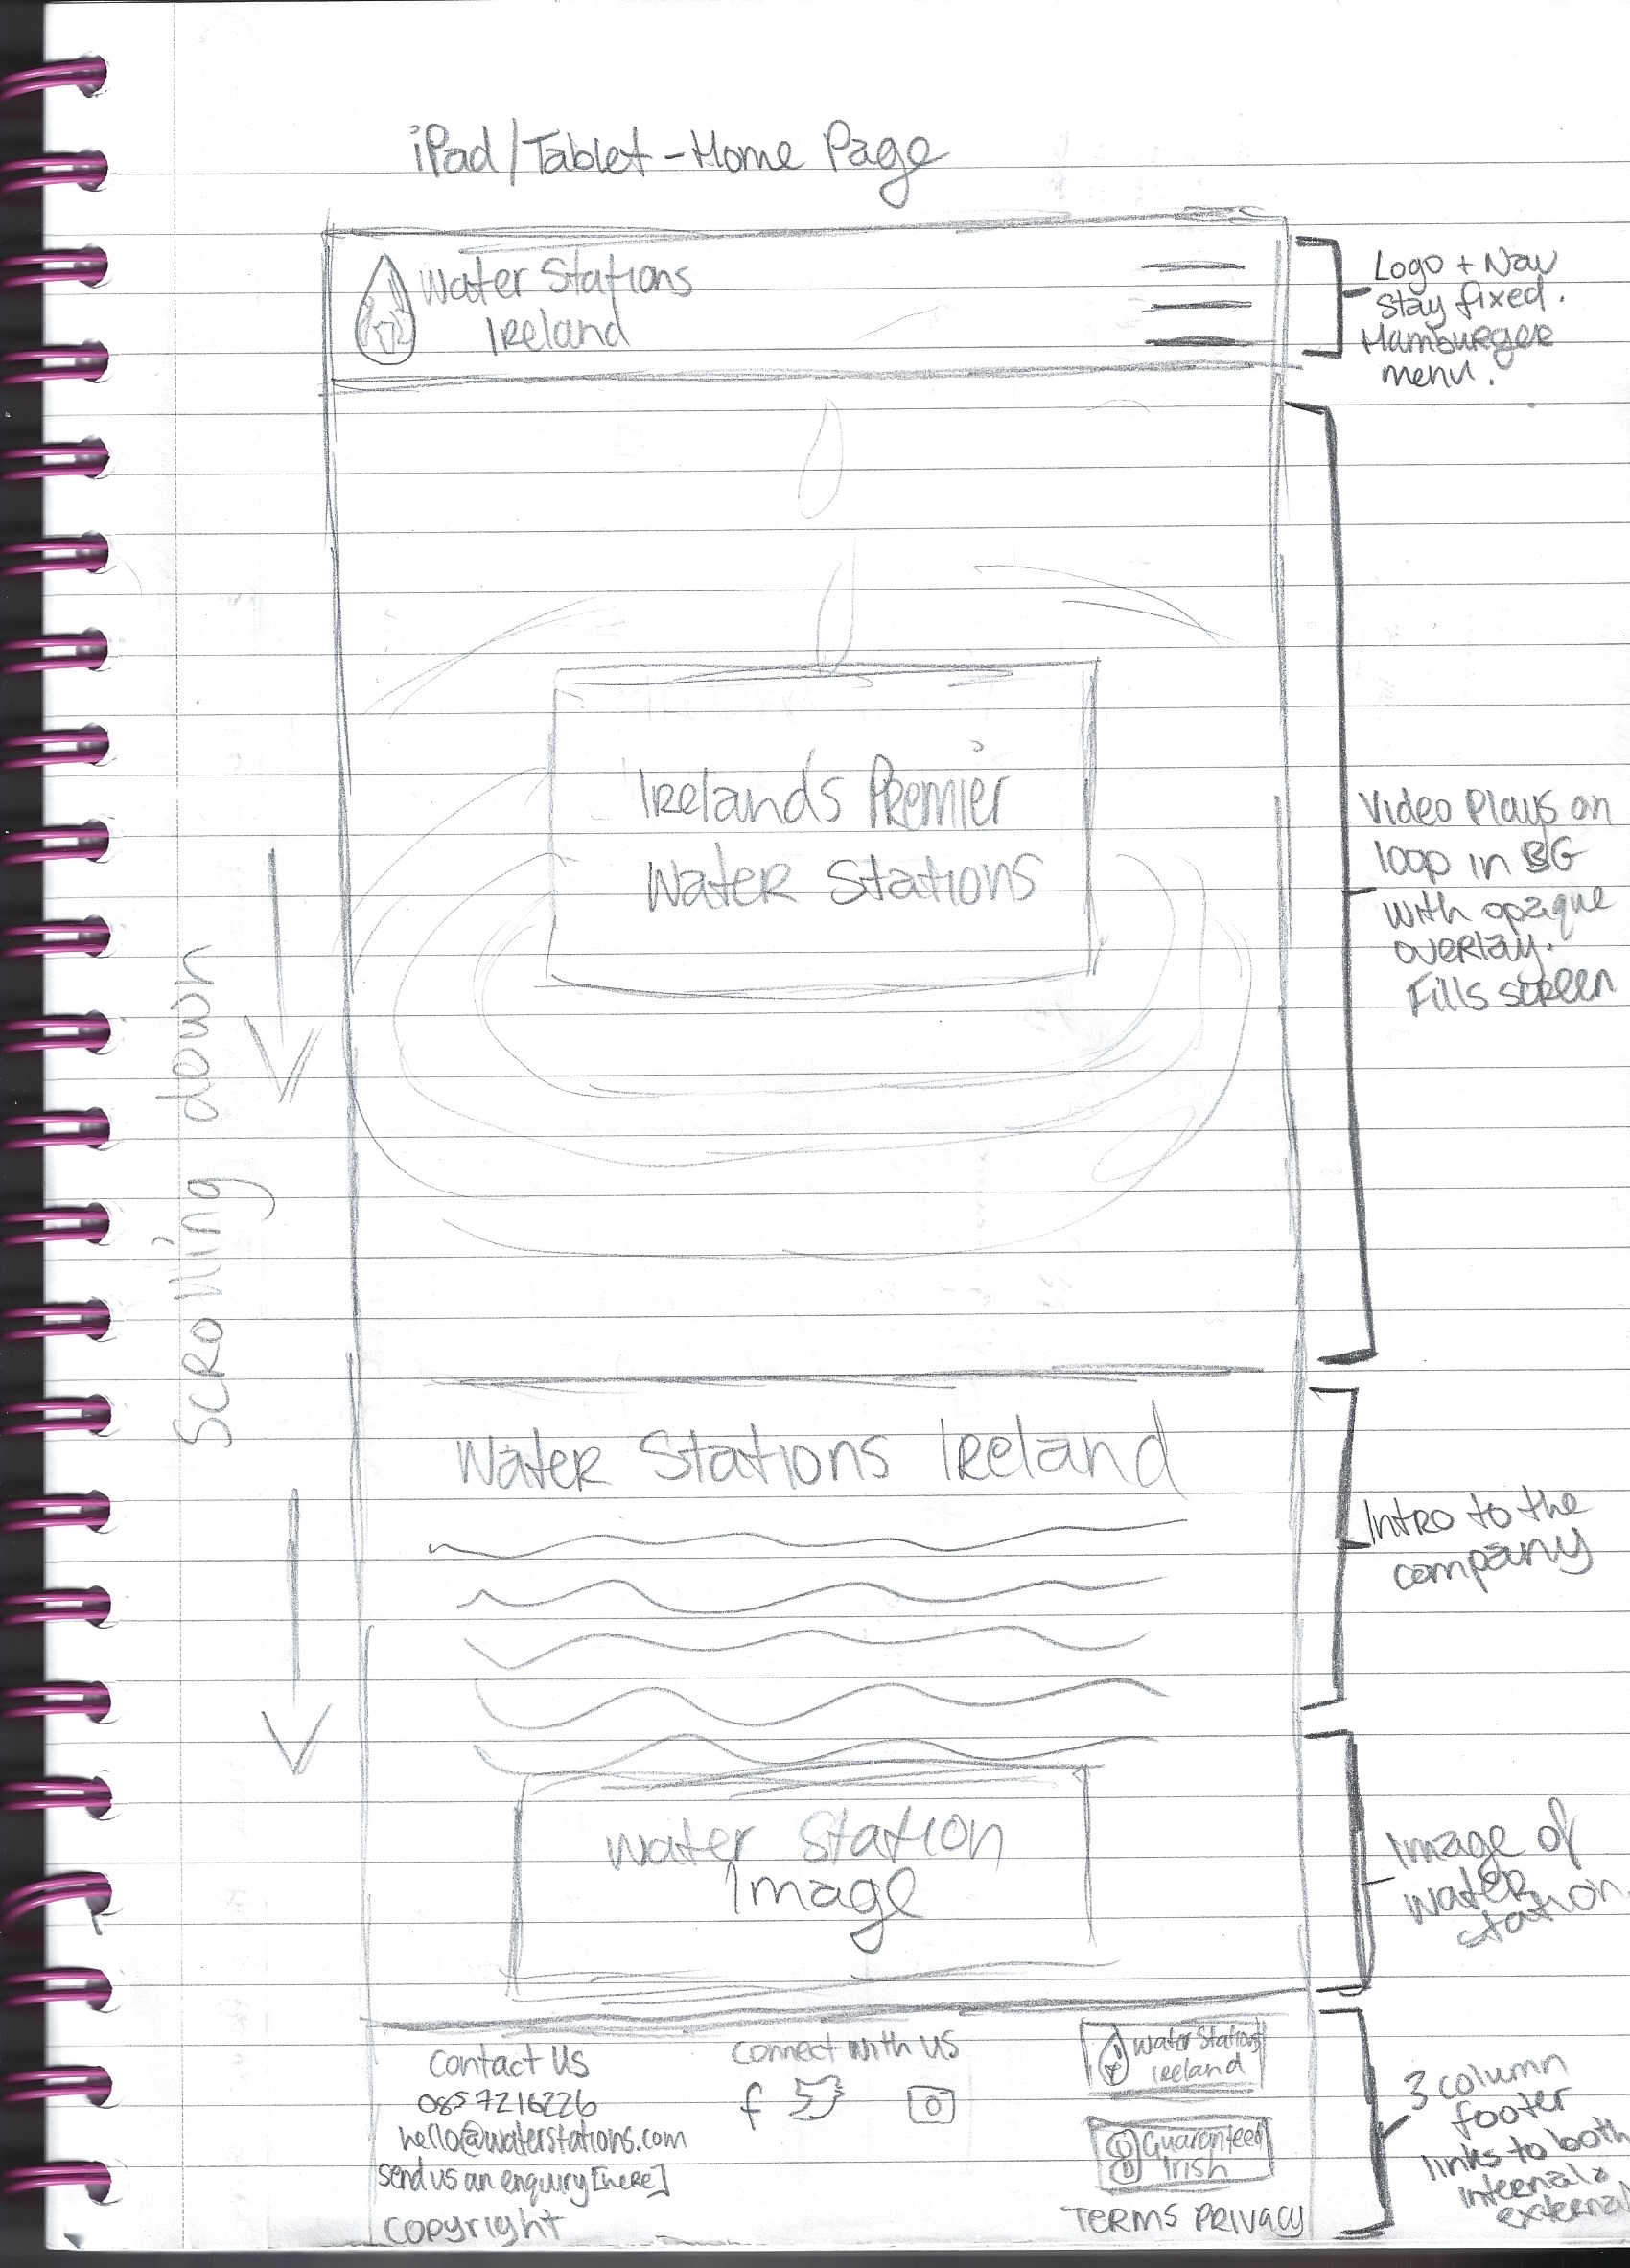 iPad/Tablet - Home Page
Water Stations
Ireland
Logo + Nav
stay fixed.
Hamburger
menu.
Irelands Premier
Water Stations
Video Plays on
loop in BG
with opaque
overlay.
Fills screen
Scrolling down
Water Stations Ireland
Intro to the
company
Water Station
Image
Image of
water
station
Contact Us
0857216226
hello@waterstations.com
send us an enquiry [here]
Copyright
Connect with us
f
Water Stations
Ireland
Guaranteed
Irish
TERMS PRIVACY
3 column
footer
links to both
internal &
external